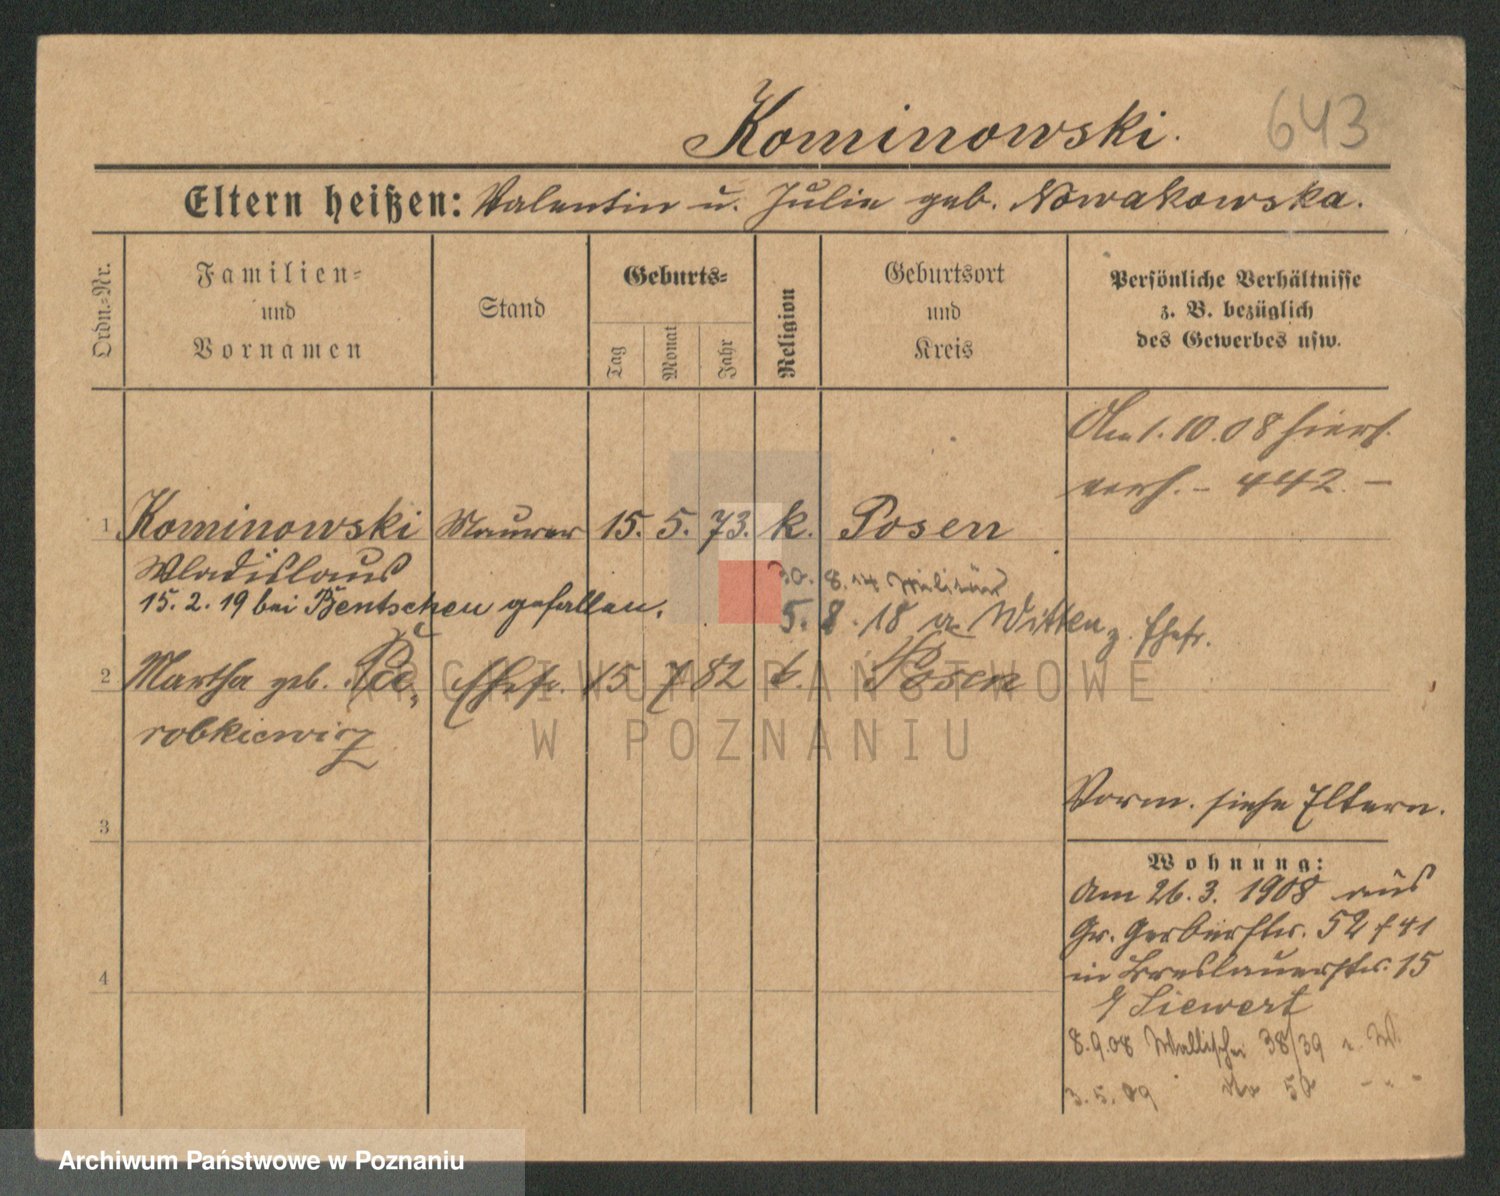 Kominowski.
643
Eltern heißen: Valentin u. Julie geb. Nowakowska.
Ordn.-Nr.
Familien-
und
Vornamen
Stand
Geburts-
Tag
Monat
Jahr
Religion
Geburtsort
und
Kreis
Persönliche Verhältnisse
z. B. bezüglich
des Gewerbes usw.
Am 1. 10. 08 hiers.
verh. – 442. –
1 Kominowski Maurer 15. 5. 73. k. Posen
Wladislaus
30. 8. 14 Militär
15. 2. 19 bei Bentschen gefallen.
5. 8. 18 a Witten z. Ehefr.
2 Martha geb. Ehefr. 15 7 82 k. Posen
robkiewicz
3
Vorm. siehe Eltern.
Wohnung:
Am 26. 3. 1908 aus
Gr. Gerberstr. 52 f 41
in Breslauerstr. 15
b/ Siewert
4
8.9.08 Wallischei 38/39 b. W.
3. 5. 09 do 50 - " -
ARCHIWUM PAŃSTWOWE
W POZNANIU
Archiwum Państwowe w Poznaniu